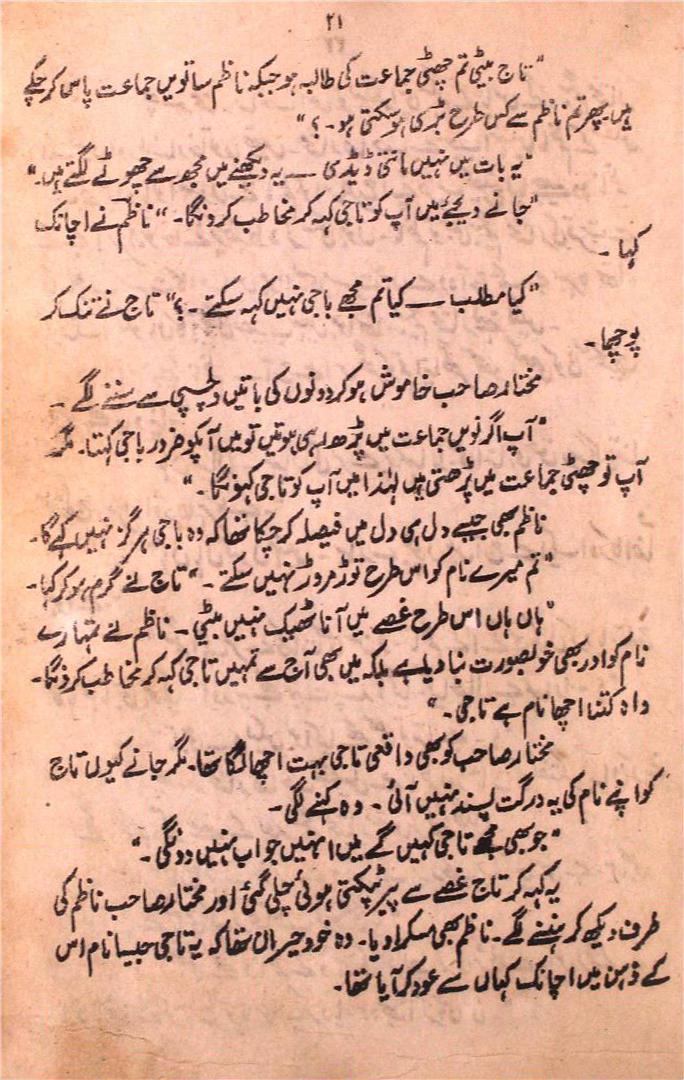 ۲۱
"تاج بیٹی تم چھٹی جماعت کی طالبہ ہو جبکہ ناظم ساتویں جماعت پاس کر چکے
ہیں۔ پھر تم ناظم سے کس طرح بڑی ہو سکتی ہو۔؟"
"یہ بات میں نہیں مانتی ڈیڈی — یہ دیکھنے میں مجھ سے چھوٹے لگتے ہیں۔"
"جانے دیجئے میں آپ کو تاجی کہہ کر مخاطب کرونگا۔" ناظم نے اچانک
کہا۔
"کیا مطلب — کیا تم مجھے باجی نہیں کہہ سکتے۔؟" تاج نے تنک کر
پوچھا۔
مختار صاحب خاموش ہو کر دونوں کی باتیں دلچسپی سے سننے لگے۔
"آپ اگر نویں جماعت میں پڑھ رہی ہوتیں تو میں آپکو ضرور باجی کہتا۔ مگر
آپ تو چھٹی جماعت میں پڑھتی ہیں لہٰذا میں آپ کو تاجی کہونگا۔"
ناظم بھی جیسے دل ہی دل میں فیصلہ کر چکا تھا کہ وہ باجی ہرگز نہیں کہے گا۔
"تم میرے نام کو اس طرح توڑ مروڑ نہیں سکتے۔" تاج نے گرم ہو کر کہا۔
"ہاں ہاں اس طرح غصے میں آنا ٹھیک نہیں بیٹی۔ ناظم نے تمہارے
نام کو اور بھی خوبصورت بنا دیا ہے بلکہ میں بھی آج سے تمہیں تاجی کہہ کر مخاطب کرونگا۔
واہ کتنا اچھا نام ہے تاجی۔"
مختار صاحب کو بھی واقعی تاجی بہت اچھا لگا تھا۔ مگر جانے کیوں تاج
کو اپنے نام کی یہ درگت پسند نہیں آئی۔ وہ کہنے لگی۔
"جو بھی مجھے تاجی کہیں گے میں انہیں جواب نہیں دونگی۔"
یہ کہہ کر تاج غصے سے پیر پٹکتی ہوئی چلی گئی اور مختار صاحب ناظم کی
طرف دیکھ کر ہنسنے لگے۔ ناظم بھی مسکرا دیا۔ وہ خود حیران تھا کہ یہ تاجی جیسا نام اس
کے ذہن میں اچانک کہاں سے عود کر آیا تھا۔